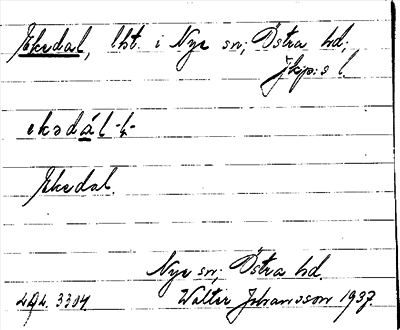 Ekedal, lht. i Nye sn; Östra hd;
Jkp:s l.
ekədál -l-
Ekedal.
Nye sn; Östra hd.
Walter Johansson 1937.